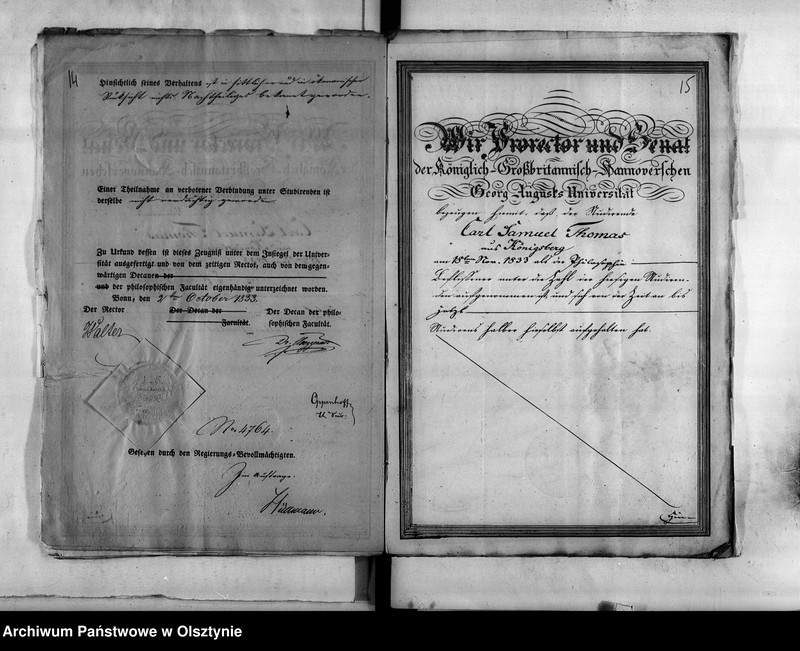 14
Hinsichtlich seines Verhaltens ist in sittlicher und in ökonomischer
Rücksicht nichts Nachtheiliges bekannt geworden.
Einer Theilnahme an verbotener Verbindung unter Studirenden ist
derselbe nicht verdächtig geworden
Zu Urkund dessen ist dieses Zeugniß unter dem Insiegel der Univer-
sität ausgefertigt und von dem zeitigen Rector, auch von dem gegen-
wärtigen Decanen der
und der philosophischen Facultät eigenhändig unterzeichnet worden.
Bonn, den 2ten October 1833.
Der Rector Der Decan der Der Decan der philo-
Facultät. sophischen Facultät.
Walter
Oppenhoff
U. Secr.
No. 4764.
Gesehen durch den Regierungs-Bevollmächtigten.
Im Auftrage.
Hüllmann.
15
Wir Prorector und Senat
der Königlich-Großbritannisch-Hannoverschen
Georg Augusts Universität
bezeugen hiemit, daß der Studirende
Carl Samuel Thomas
aus Königsberg
am 15ten Nov. 1833 als der Philosophie
Beflissener unter die Zahl der hiesigen Studiren-
den aufgenommen ist und sich von der Zeit an bis
jetzt
Studirens halber hieselbst aufgehalten hat.
Archiwum Państwowe w Olsztynie